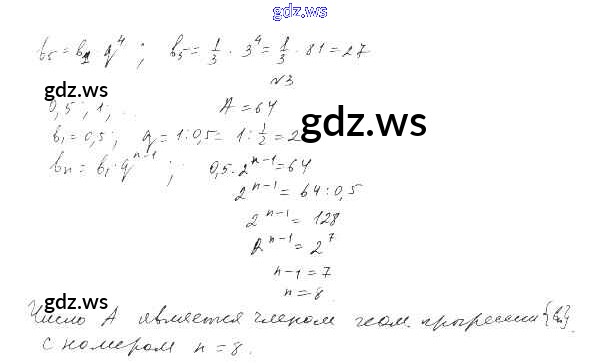 gdz.ws
b₅ = b₁ · q⁴ ; b₅ = 1/3 · 3⁴ = 1/3 · 81 = 27
gdz.ws
№3
0,5 ; 1 ; ... A = 64
gdz.ws
b₁ = 0,5 ; q = 1 : 0,5 = 1 : 1/2 = 2
bₙ = b₁ · qⁿ⁻¹ ; 0,5 · 2ⁿ⁻¹ = 64
2ⁿ⁻¹ = 64 : 0,5
2ⁿ⁻¹ = 128
2ⁿ⁻¹ = 2⁷
n-1 = 7
n = 8
gdz.ws
Число A является членом геом. прогрессии {bₙ}
с номером n = 8.
gdz.ws